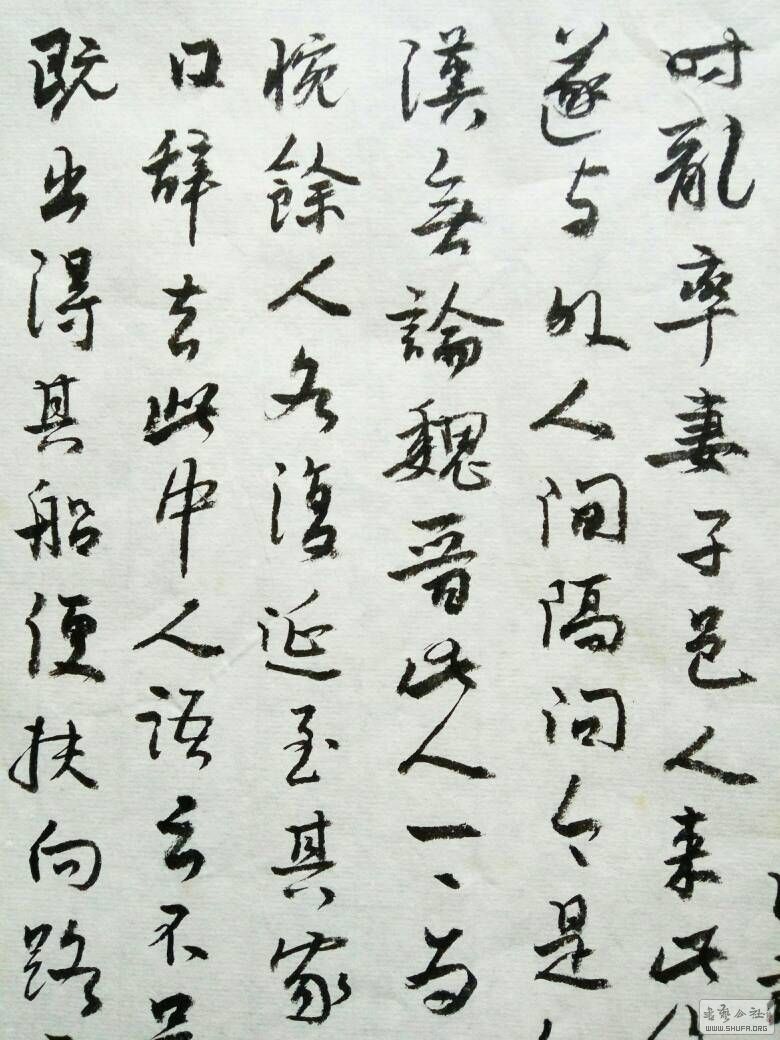 时亂率妻子邑人来此
遂与外人间隔问今是
漢無論魏晋此人一一为
惋餘人各復延至其家
日辞去此中人語云不足
既出得其船便扶向路
書藝公社
WWW.SHUFA.ORG